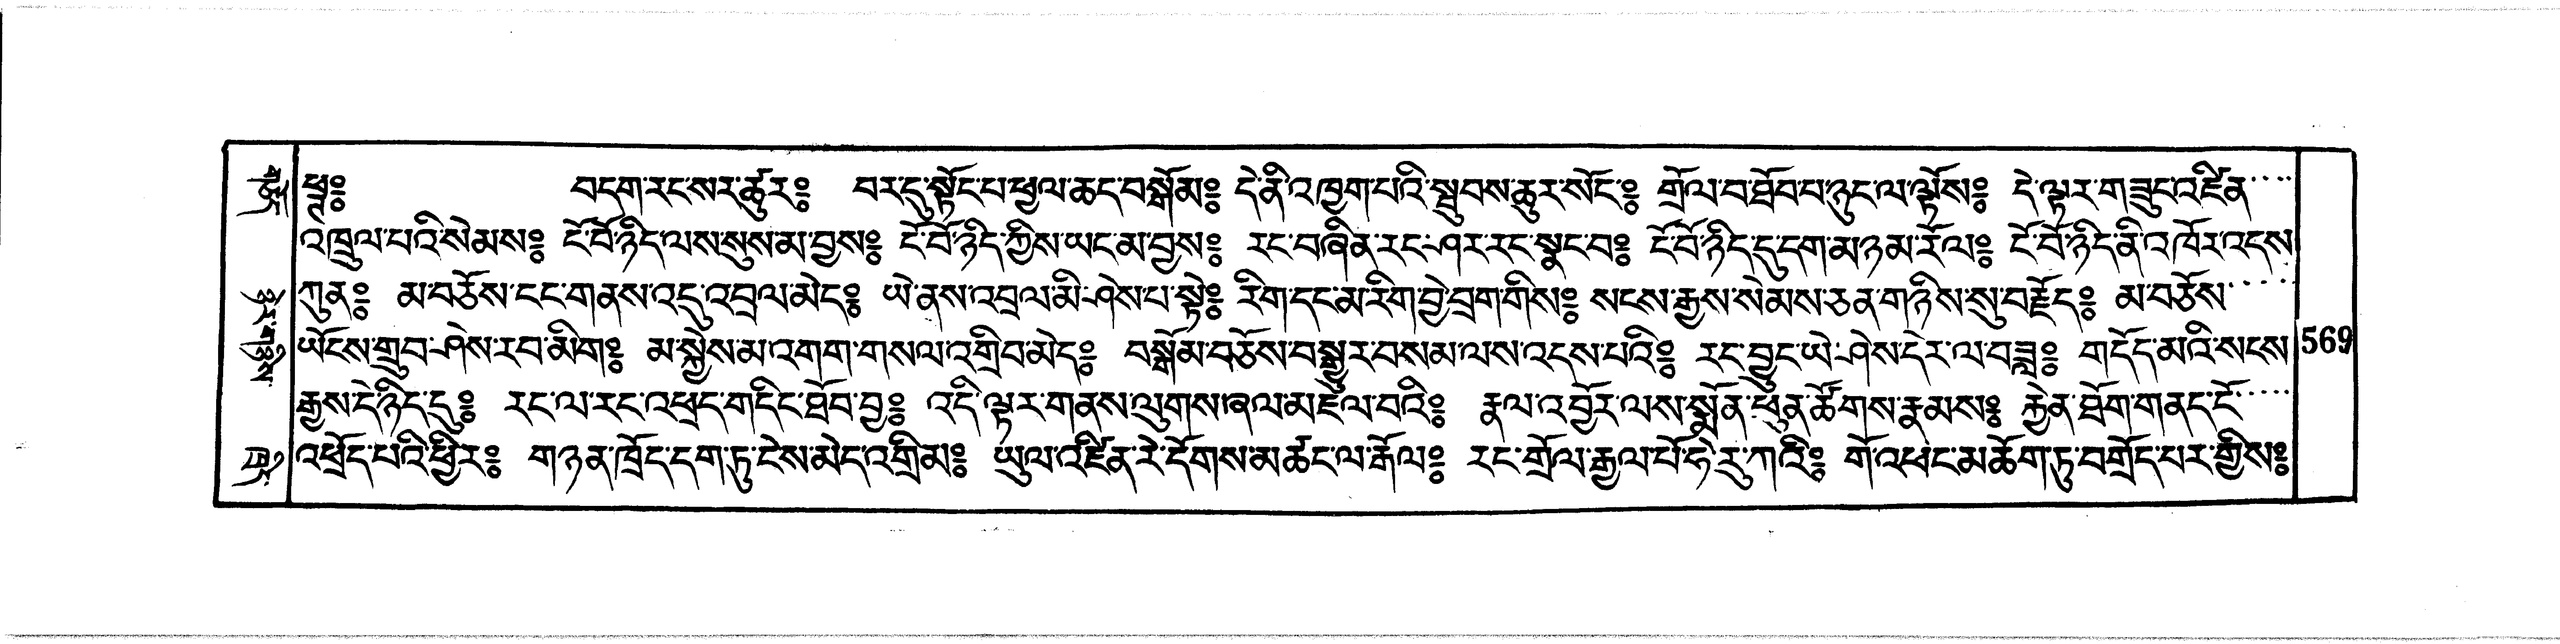 ཕཊ༔ བདག་རང་སར་ཚུར༔ བར་དུ་སྟོང་པ་ཕྱལ་ཆད་བསྒོམ༔ དེ་ནི་འཁྱག་པའི་སྦུབས་ཆུར་སོང༔ གྲོལ་བ་ཐོབ་པ་ཉུང་ལ་ལྟོས༔ དེ་ལྟར་གཟུང་འཛིན་
འཁྲུལ་པའི་སེམས༔ ངོ་བོ་ཉིད་ལས་སུས་མ་བྱས༔ ངོ་བོ་ཉིད་ཀྱིས་ཡང་མ་བྱས༔ རང་བཞིན་རང་ཤར་རང་སྣང་བ༔ ངོ་བོ་ཉིད་དུ་དག་མཉམ་རོལ༔ ངོ་བོ་ཉིད་ནི་འཁོར་འདས
ཀུན༔ མ་བཅོས་ངང་གནས་འདུ་འབྲལ་མེད༔ ཡེ་ནས་འབྲལ་མི་ཤེས་པ་སྟེ༔ རིག་དང་མ་རིག་བྱེ་བྲག་གིས༔ སངས་རྒྱས་སེམས་ཅན་གཉིས་སུ་བརྗོད༔ མ་བཅོས་
ཡོངས་གྲུབ་ཤེས་རབ་མིག༔ མ་སྐྱེས་མ་འགག་གསལ་འགྲིབ་མེད༔ བསྒོམ་བཅོས་བསྒྱུར་བསམ་ལས་འདས་པའི༔ རང་བྱུང་ཡེ་ཤེས་དེར་ལ་བཟླ༔ གདོད་མའི་སངས
རྒྱས་དེ་ཉིད་དུ༔ རང་ལ་རང་འཕྲད་གདིང་ཐོབ་བྱ༔ འདི་ལྟར་གནས་ལུགས་ཞལ་མཇལ་བའི༔ རྣལ་འབྱོར་ལས་སྨོན་ཕུན་ཚོགས་རྣམས༔ རྐྱེན་ཐོག་གནད་ངོ་
འཕྲོད་པའི་ཕྱིར༔ གཉན་ཁྲོད་དག་ཏུ་ངེས་མེད་འགྲིམ༔ ཡུལ་འཛིན་རེ་དོགས་མཚང་ལ་རྒོལ༔ རང་གྲོལ་རྒྱལ་པོ་ཧེ་རུ་ཀའི༔ གོ་འཕང་མཆོག་ཏུ་བགྲོད་པར་གྱིས༔
569